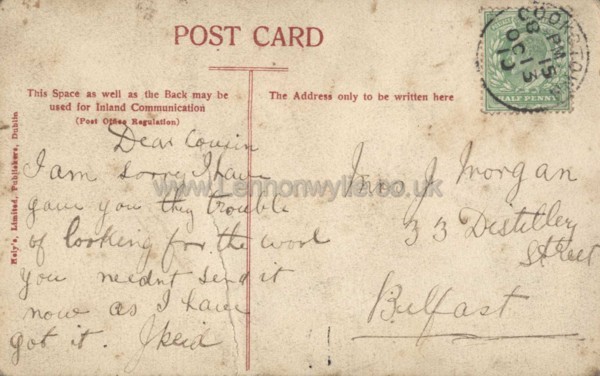 POST CARD
This Space as well as the Back may be
used for Inland Communication
(Post Office Regulation)
The Address only to be written here
Hely's, Limited, Publishers, Dublin
COOKSTOWN
8 PM
OC 13
HALF PENNY
www.Lennonwylie.co.uk
Dear Cousin
I am sorry I have
gave you the trouble
of looking for the wool
you neednt send it
now as I have
got it. J Reid
J Morgan
33 Distillery
Street
Belfast